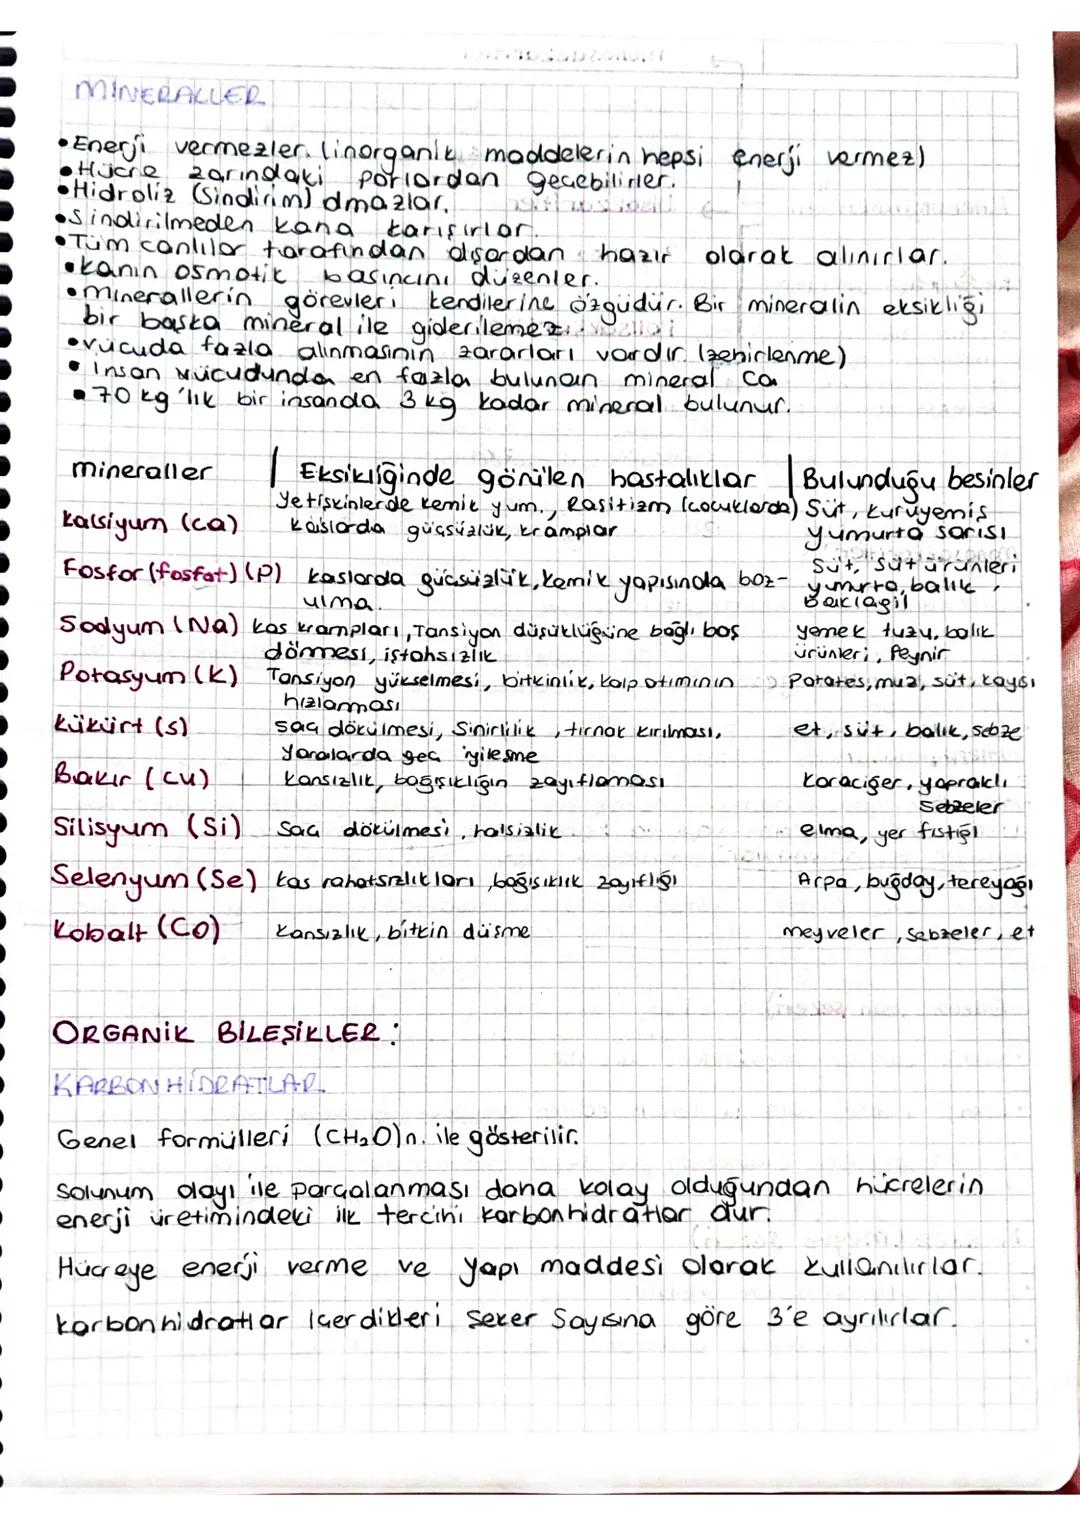 MİNERALLER
•Enerji vermezler. (inorganik maddelerin hepsi enerji vermez)
•Hücre zarındaki porlardan geçebilirler.
•Hidroliz (Sindirim) olmazlar.
•Sindirilmeden kana karışırlar.
•Tüm canlılar tarafından dışardan hazır olarak alınırlar.
•Kanın osmotik basıncını düzenler.
•minerallerin görevleri kendilerine özgüdür. Bir mineralin eksikliği
bir başka mineral ile giderilemez.
•vücuda fazla alınmasının zararları vardır (zehirlenme)
•insan vücudunda en fazla bulunan mineral Ca
•70 kg'lık bir insanda 3 kg kadar mineral bulunur.
mineraller | Eksikliğinde görülen hastalıklar | Bulunduğu besinler
Kalsiyum (Ca) Yetişkinlerde kemik yum., Raşitizm (çocuklarda) Süt, kuruyemiş
kaslarda güçsüzlük, kramplar yumurta sarısı
Fosfor (fosfat) (P) kaslarda güçsüzlük, kemik yapısında boz- Süt, süt ürünleri
ulma. yumurta, balık,
baklagil
Sodyum (Na) kas krampları, Tansiyon düşüklüğüne bağlı baş yemek tuzu, balık
dönmesi, iştahsızlık ürünleri, Peynir
Potasyum (K) Tansiyon yükselmesi, bitkinlik, kalp atımının Patates, muz, süt, kayısı
hızlanması
Kükürt (S) saç dökülmesi, Sinirlilik, tırnak kırılması, et, süt, balık, sebze
Yaralarda geç iyileşme
Bakır (Cu) Kansızlık, bağışıklığın zayıflaması karaciğer, yapraklı
sebzeler
Silisyum (Si) Saç dökülmesi, halsizlik elma, yer fıstığı
Selenyum (Se) kas rahatsızlıkları, bağışıklık zayıflığı Arpa, buğday, tereyağı
Kobalt (Co) Kansızlık, bitkin düşme meyveler, sebzeler, et
ORGANİK BİLEŞİKLER:
KARBONHİDRATLAR
Genel formülleri (CH₂O)n. ile gösterilir.
Solunum olayı ile parçalanması daha kolay olduğundan hücrelerin
enerji üretimindeki ilk tercihi karbonhidratlar dır.
Hücreye enerji verme ve yapı maddesi olarak kullanılırlar.
karbonhidratlar İçerdikleri Şeker Sayısına göre 3'e ayrılırlar.